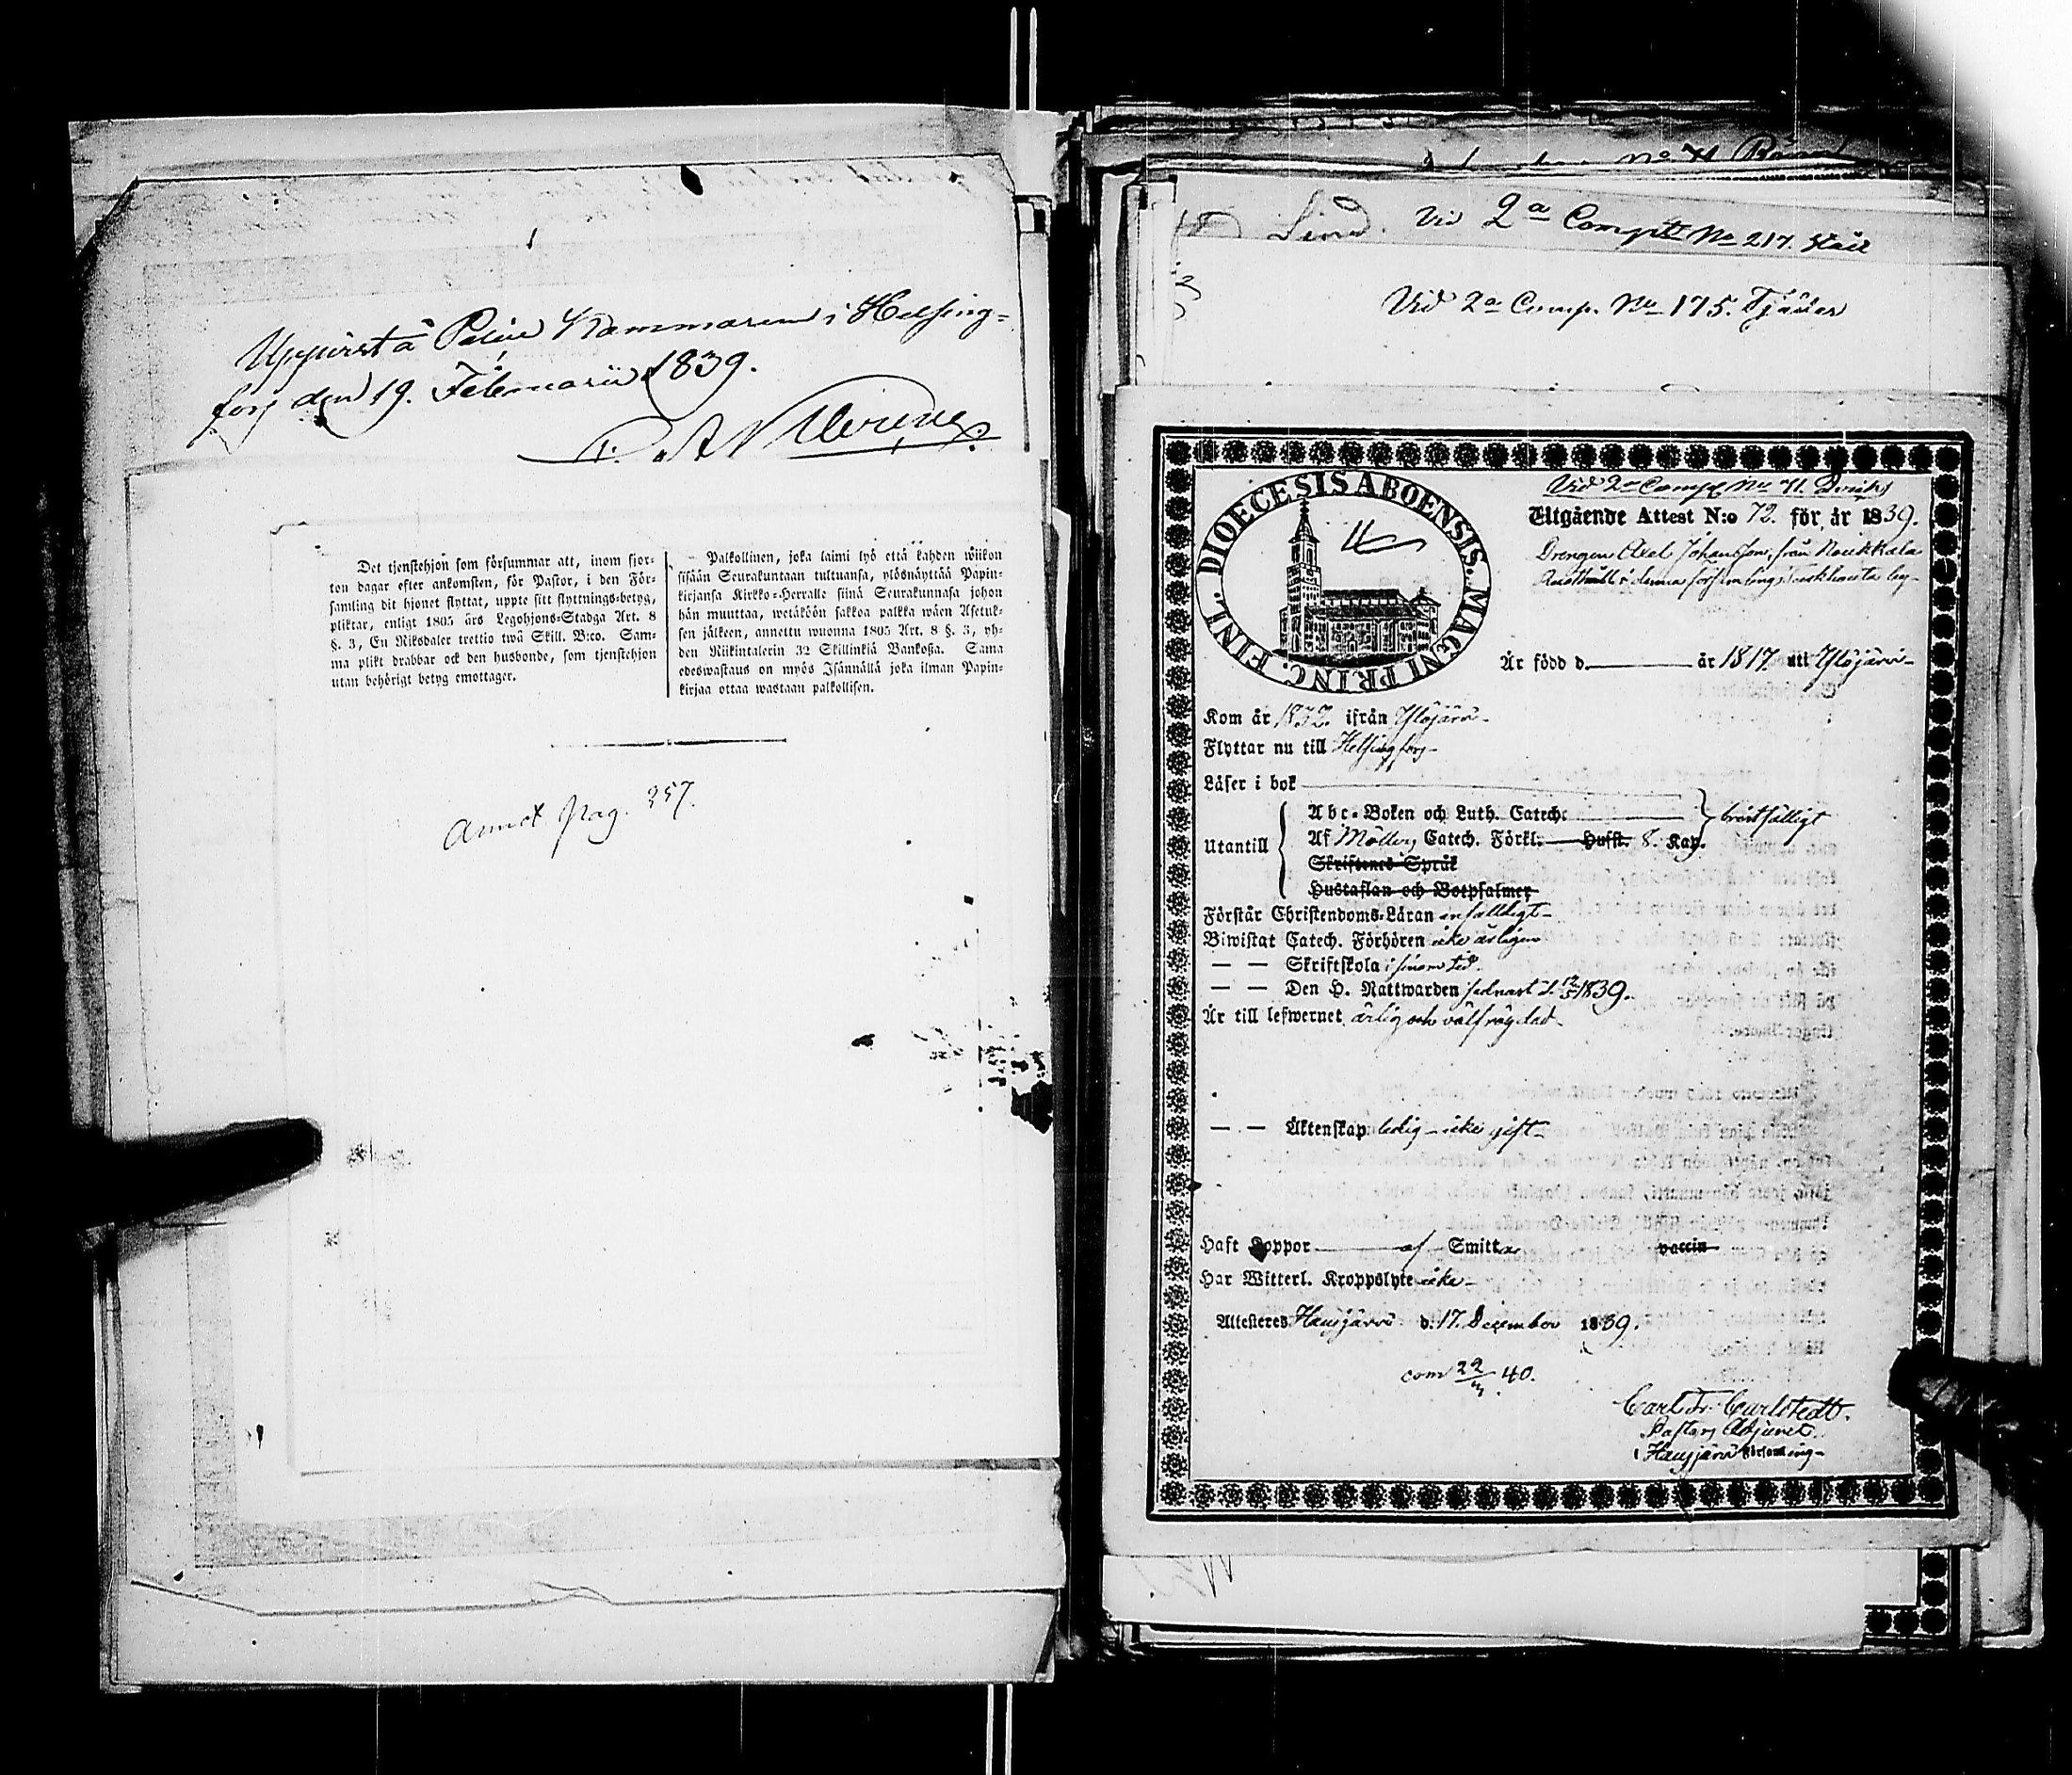 Uppvist å Police Kammaren i Helsing=
fors den 19. Februarii 1839.
Det tjenstehjon som försummar att, inom fjor-
ton dagar efter ankomsten, för Pastor, i den För-
samling dit hjonet flyttat, uppte sitt flyttnings-betyg,
pliktar, enligt 1805 års Legohjons-Stadga Art. 8
§. 3, En Riksdaler trettio twå Skill. B:co. Sam-
ma plikt drabbar ock den husbonde, som tjenstehjon
utan behörigt betyg emottager.
Palkollinen, joka laimi lyö että kahden wiikon
sisään Seurakuntaan tultuansa, ylösnäyttää Papin-
kirjansa Kirkko-Herralle siinä Seurakunnasa johon
hän muuttaa, wetäköön sakkoa palkka wäen Asetuk-
sen jälkeen, annettu wuonna 1805 Art. 8 §. 3, yh-
den Riikintalerin 32 Skillinkiä Bankosa. Sama
edeswastaus on myös Isännällä joka ilman Papin-
kirjaa ottaa wastaan palkollisen.
Annot pag. 357.
No 71
Lind. Vid 2a Comp No 217.
Vid 2a Comp. No 175.
Vid 2a Comp No 71.
DIOECESIS ABOENSIS. MAGNI PRINC. FINL.
Utgående Attest N:o 72. för år 1839.
Drengen Axel Johansson, från
i denna församling
Är född d. år 1817. uti Ylöjärvi
Kom år 1832. ifrån Ylöjärvi
Flyttar nu till Helsingfors
Läser i bok
Utantill
Abc-Boken och Luth. Catech: bristfälligt
Af Möllers Catech. Förkl. Hufst. 8. Kap.
Skriftenes Språk
Hustaflan och Botpsalmer
Förstår Christendoms-Läran enfalldigt
Biwistat Catech. Förhören icke årligen
— — Skriftskola i sinom tid.
— — Den H. Nattwarden sednast d. 1839.
Är till lefwernet ärlig och välfrägdad
— — Äktenskap ledig icke gift
Haft Koppor af Smitta vaccin
Har Witterl. Kroppslyte icke
Attesteres Hausjärvi d. 17. December 1839.
com 22/3 40.
Carl Fr. Carlstedt.
Pastors Adjunct
i Hausjärvi Församling